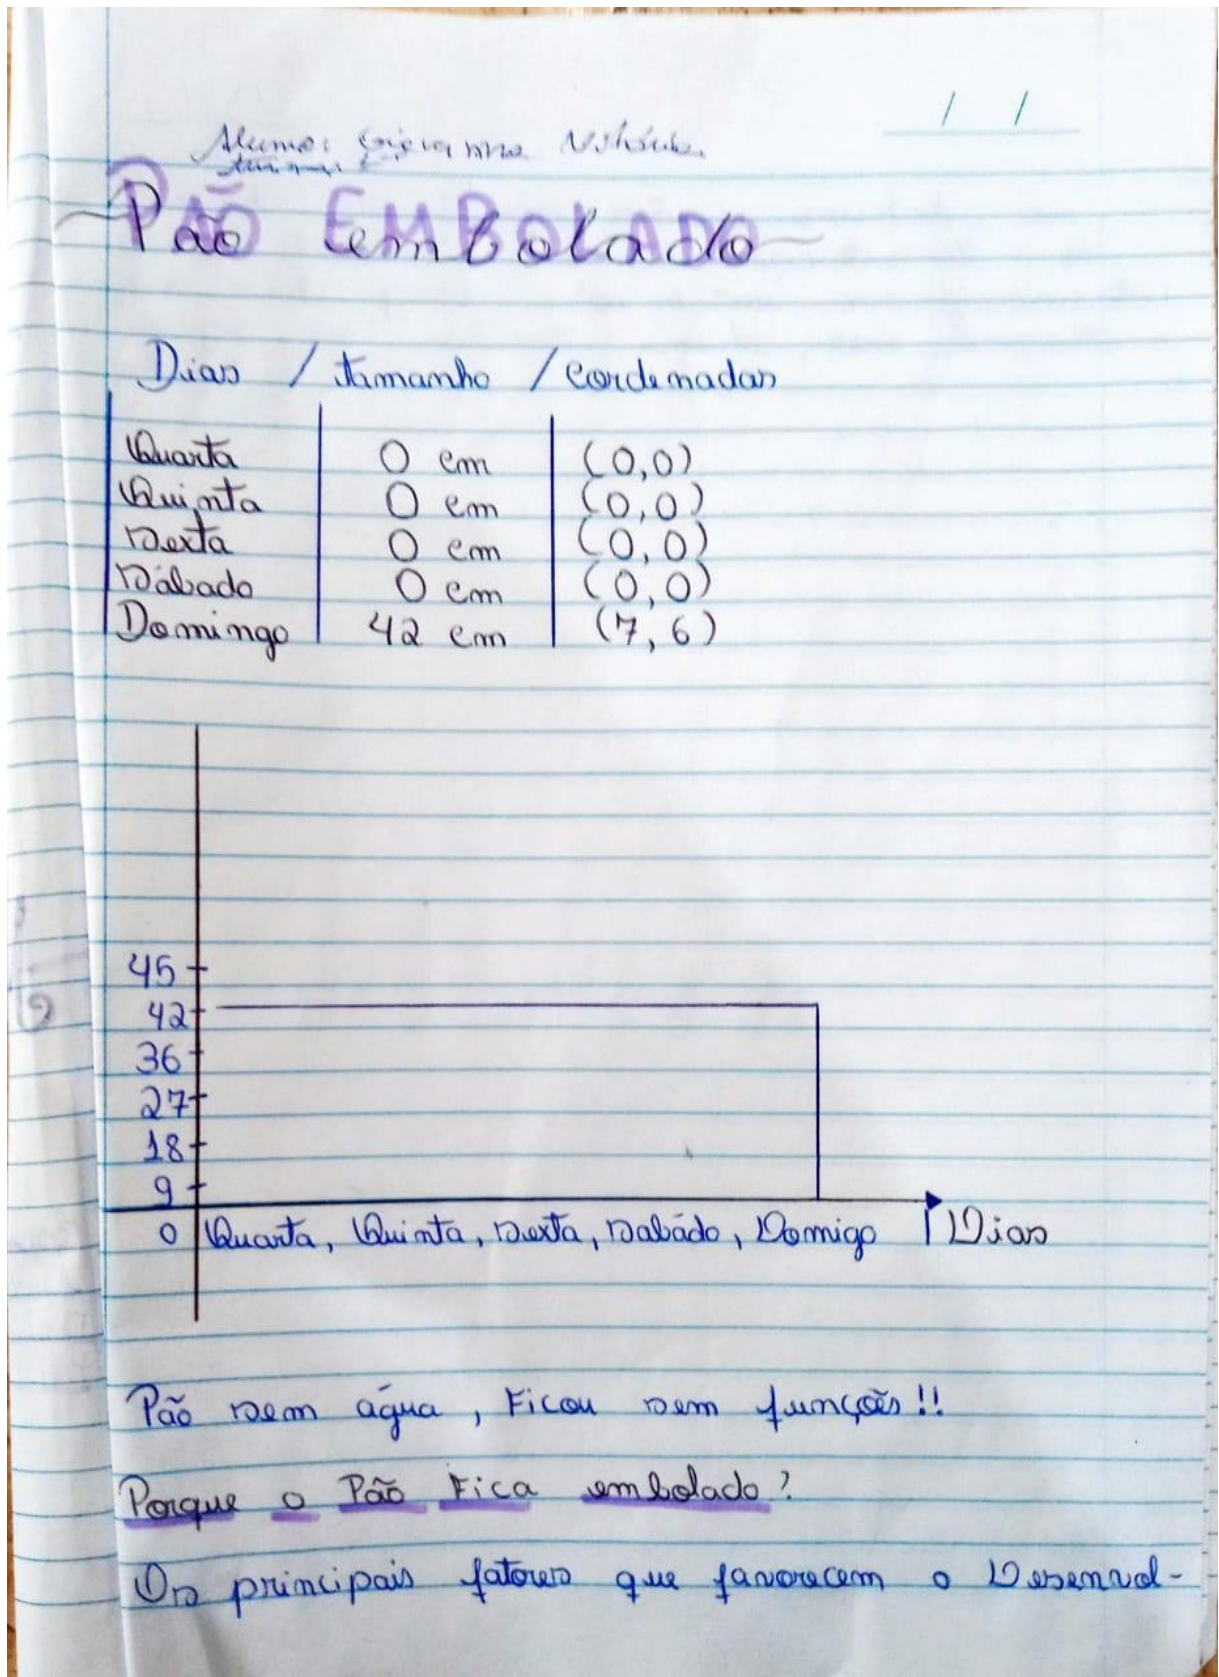 / /
Aluna: Giovanna
Pão Embolado
Dias / tamanho / cordenadas
Quarta 0 cm (0,0)
Quinta 0 cm (0,0)
Sexta 0 cm (0,0)
Sábado 0 cm (0,0)
Domingo 42 cm (7,6)
45
42
36
27
18
9
0 Quarta, Quinta, Sexta, Sabádo, Domigo | Dias
Pão sem água, Ficou sem funções!!
Porque o Pão Fica embolado?
Os principais fatores que favorecem o Desenvol-